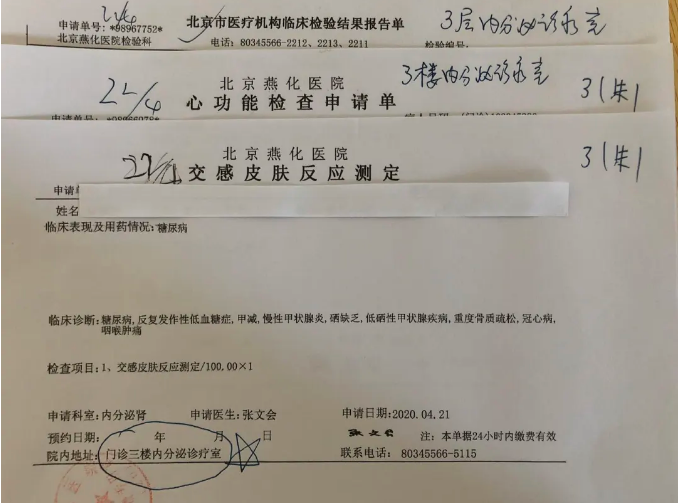 22/4
申请单号: *98967752*
北京市医疗机构临床检验结果报告单
3层内分泌诊疗室
北京燕化医院检验科
电话: 80345566-2212、2213、2211
检验编号:
北京燕化医院
3楼内分泌诊疗室
22/4
心功能检查申请单
3(朱)
申请单号: *98966978*
北京燕化医院
22/4
交感皮肤反应测定
3(朱)
申请
姓名
临床表现及用药情况:糖尿病
临床诊断:糖尿病,反复发作性低血糖症,甲减,慢性甲状腺炎,硒缺乏,低硒性甲状腺疾病,重度骨质疏松,冠心病,
咽喉肿痛
检查项目:1、交感皮肤反应测定/100.00×1
申请科室:内分泌肾 申请医生:张文会 申请日期:2020.04.21
预约日期: 年 月 日 张文会 注: 本单据24小时内缴费有效
院内地址: 门诊三楼内分泌诊疗室 联系电话: 80345566-5115